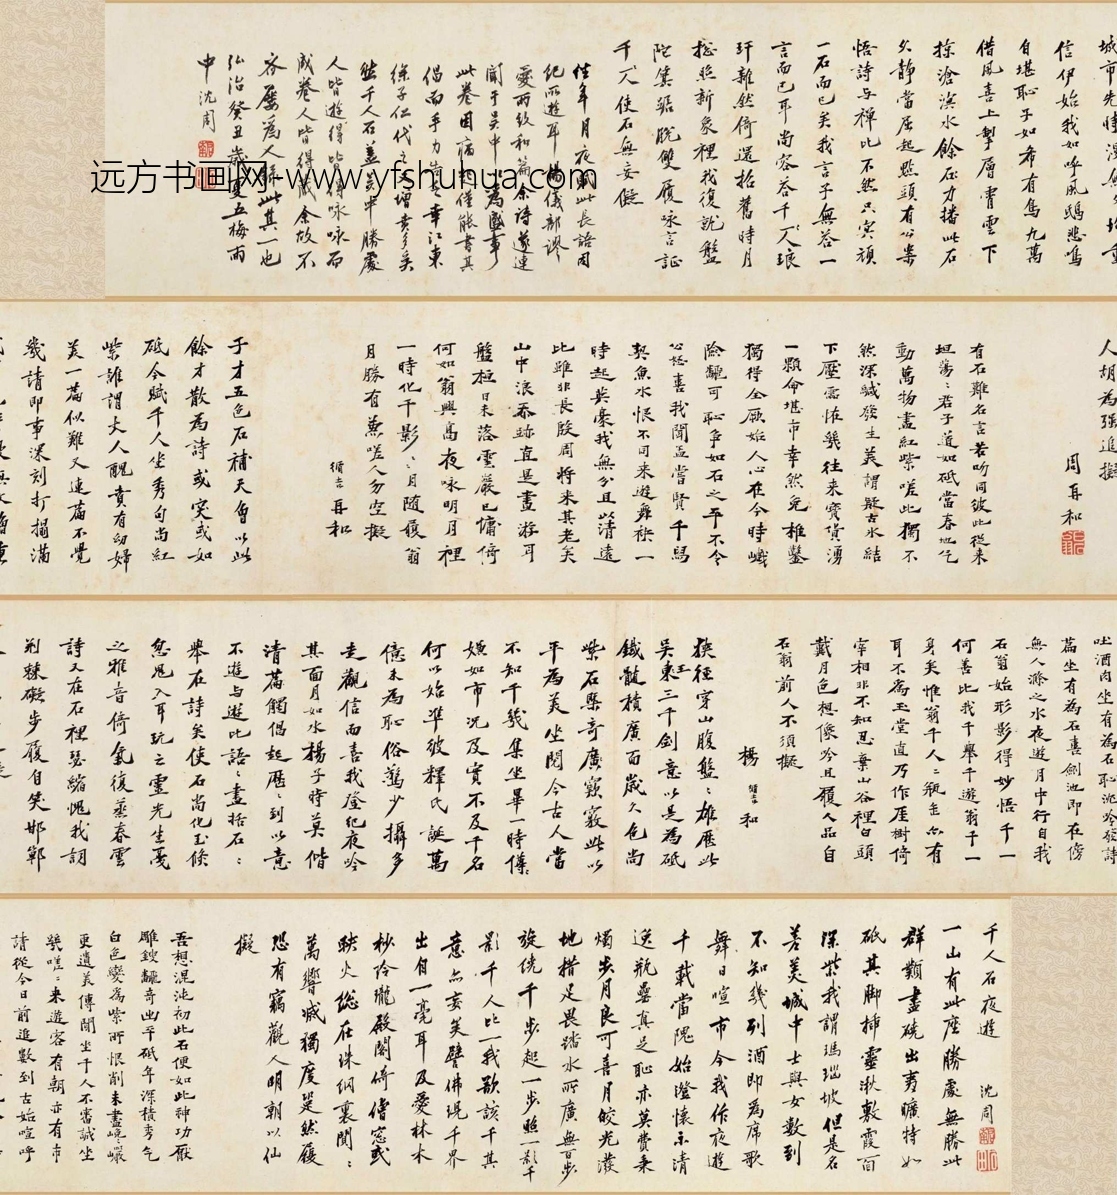 信伊始我如呼風鴟悲鳴
自堪恥子如希有鳥九萬
借風喜上擊層霄雲下
掠滄溟水餘力播此石
久靜當屈起點頭有公案
悟詩與禪比不然只冥頑
一石而已矣我言子無答一
言而已耳尚容吞千人琅
玕雜然倚還拾舊時月
搃照新象裡我復就盤
陀箕踞脫雙履咏言証
千人使石無妄儗
往年月夜賦此長語因
紀所遊耳楊儀部謬
愛而致和篇余詩遂連
聞于吳中以為盛事
此卷因僅能書其
倡而手力幸江東
徐子仁代之增貴多矣
然千人石蓋吴中勝處
人皆遊得皆得咏咏而
成卷人皆得藏余故不
吝屢為人錄此其一也
弘治癸丑歲夏五梅雨
中沈周
远方书画网-www.yfshuhua.com
人胡為强追擬
周再和
有石難名言苦听同彼此從来
坦蕩蕩君子道如砥當春地气
動萬物盡紅紫嗟此獨不
然深緘發生美謂凝古水結
下壓靈怪幾往来寳貨湧
一顆命堪市幸然免椎鑿
獨得全厥始人心在今時巇
險翻可恥争如石之平不令
公怒喜我聞孟嘗賢千馬
契魚水恨不同来遊舞袂一
時起英豪我無分且以清遠
比雖非長殷周將米其老矣
山中浪吞跡直是畫游耳
盤桓日未落雲巖已慵倚
何如翁興高夜咏明月裡
一時化千影月隨履翁
月勝有蕙嗟人勿空擬
循吉再和
于才五色石補天曾以此
餘才散為詩或突或如
砥今賦千人坐秀句尚紅
紫誰謂丈人醜貴有幼婦
美一篇似難又連篇不覺
幾請即事深刻打搨滿
吐酒肉坐有為石恥沈吟發詩
篇坐有為石喜劍池即在傍
無人滌之水夜遊月中行自我
石翁始形影得妙悟千一
何善比我千舉千遊翁千一
身矣惟翁千人二瓶盂亦有
耳不為玉堂直乃作厓樹倚
宰相非不知忍棄山谷裡白頭
戴月色想像吟且履人品自
石翁前人不須擬
楊循吉和
挾徑穿山腹盤盤雄歷此
吳王東三千劍意以是為砥
鐵髓積廣面歲久色尚
紫石壓奇廣竅竅此以
平為美坐閱今古人當
不知千幾集坐畢一時僊
嫌如市況及實不及千名
何以始準彼釋氏誕萬
億未為恥俗駕少攝多
走觀信而喜我登紀夜吟
其面月如水楊子時莫偕
清篇觸倡起歷歷到以意
不遊与遊比語語盡指石石
舉在詩矣使石尚化玉倏
忽鬼入耳玩之靈光生戛
之雅音倚氣復蒸春雲
詩又在石裡瑟縮愧我詞
荆棘礙步履自笑邯鄲
千人石夜遊
沈周
一山有此座勝處無勝此
群顆盡磽出夷曠特如
砥其脚插靈湫敷霞面
深紫我謂瑪瑙坡但是名
差美城中士與女數到
不知幾列酒即為席歌
舞日喧市今我作夜遊
千載當隗始澄懷示清
逸瓶罍真足恥亦莫費秉
燭步月良可喜月皎光潑
地措足畏踏水所廣無百步
旋繞千步起一步照一影千
影千人比一我欲該千其
意亦妄矣譬佛現千界
出自一毫耳及愛林木
杪玲瓏殿閣倚僧窓或
映火總在珠網裏闃闃
萬響滅獨度跫然履
恐有竊觀人明朝以仙
擬
吾想混沌初此石便如此神功厭
雕鎪翻奇出平砥年深積秀气
白色變為紫所恨削未盡巉巖
更遺美傳聞坐千人不審誠坐
幾嗟嗟来遊客有朝亦有市
請從今日前追數到古始喧呼